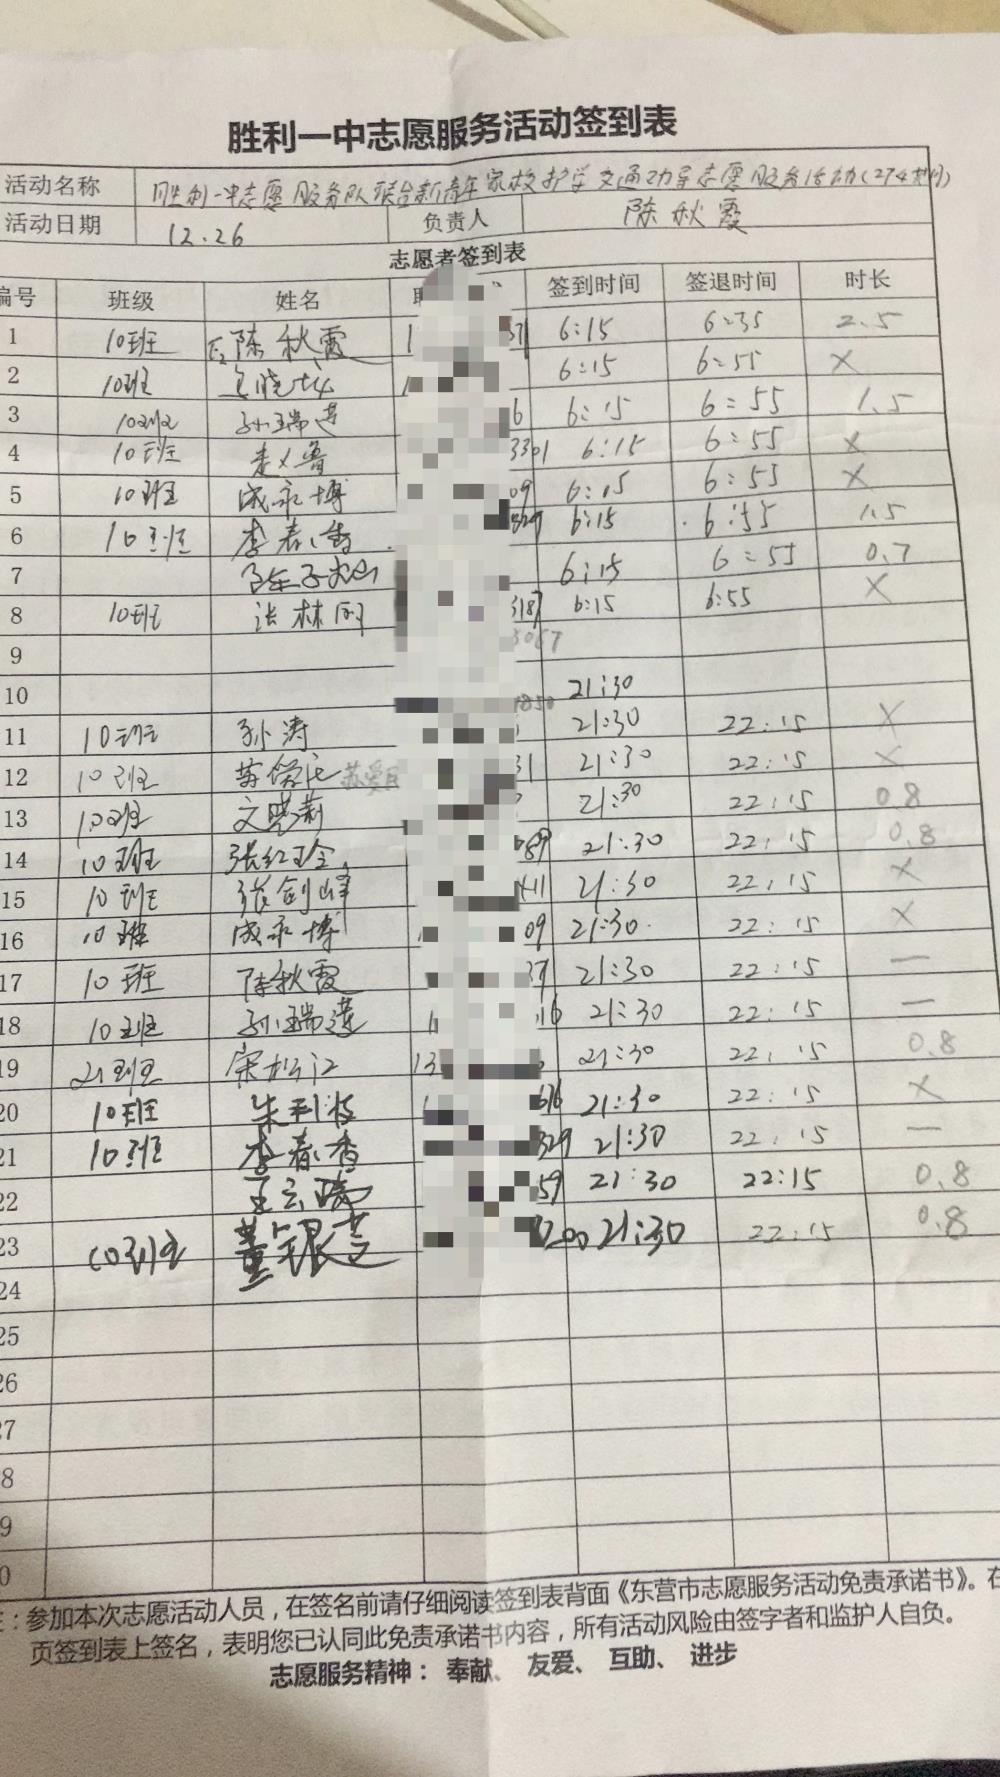 胜利一中志愿服务活动签到表
活动名称 胜利一中志愿服务队联合新青年家校护学交通劝导志愿服务活动(274期)
活动日期 12.26 负责人 陈秋霞
志愿者签到表
编号 班级 姓名 签到时间 签退时间 时长
1 10班 陈秋霞 1 37 6:15 6:35 2.5
2 10班 6:15 6:55 ×
3 10班 孙瑞莲 6 6:15 6:55 1.5
4 10班 3301 6:15 6:55 ×
5 10班 成永博 09 6:15 6:55 ×
6 10班 李春香 329 6:15 6:55 1.5
7 6:15 6:55 0.7
8 10班 张林刚 3187 6:15 6:55 ×
9 3067
10 1850 21:30
11 10班 孙涛 21:30 22:15 ×
12 10班 31 21:30 22:15 ×
13 10班 文晓莉 21:30 22:15 0.8
14 10班 张红玲 89 21:30 22:15 0.8
15 10班 张剑峰 11 21:30 22:15 ×
16 10班 成永博 09 21:30 22:15 ×
17 10班 陈秋霞 37 21:30 22:15 —
18 10班 孙瑞莲 1 16 21:30 22:15 —
19 21班 宋松江 13 21:30 22:15 0.8
20 10班 朱利波 616 21:30 22:15 ×
21 10班 李春香 329 21:30 22:15 —
22 59 21:30 22:15 0.8
23 10班 董银芝 200 21:30 22:15 0.8
24
25
26
27
8
9
0
:参加本次志愿活动人员，在签名前请仔细阅读签到表背面《东营市志愿服务活动免责承诺书》。在
页签到表上签名，表明您已认同此免责承诺书内容，所有活动风险由签字者和监护人自负。
志愿服务精神： 奉献、 友爱、 互助、 进步